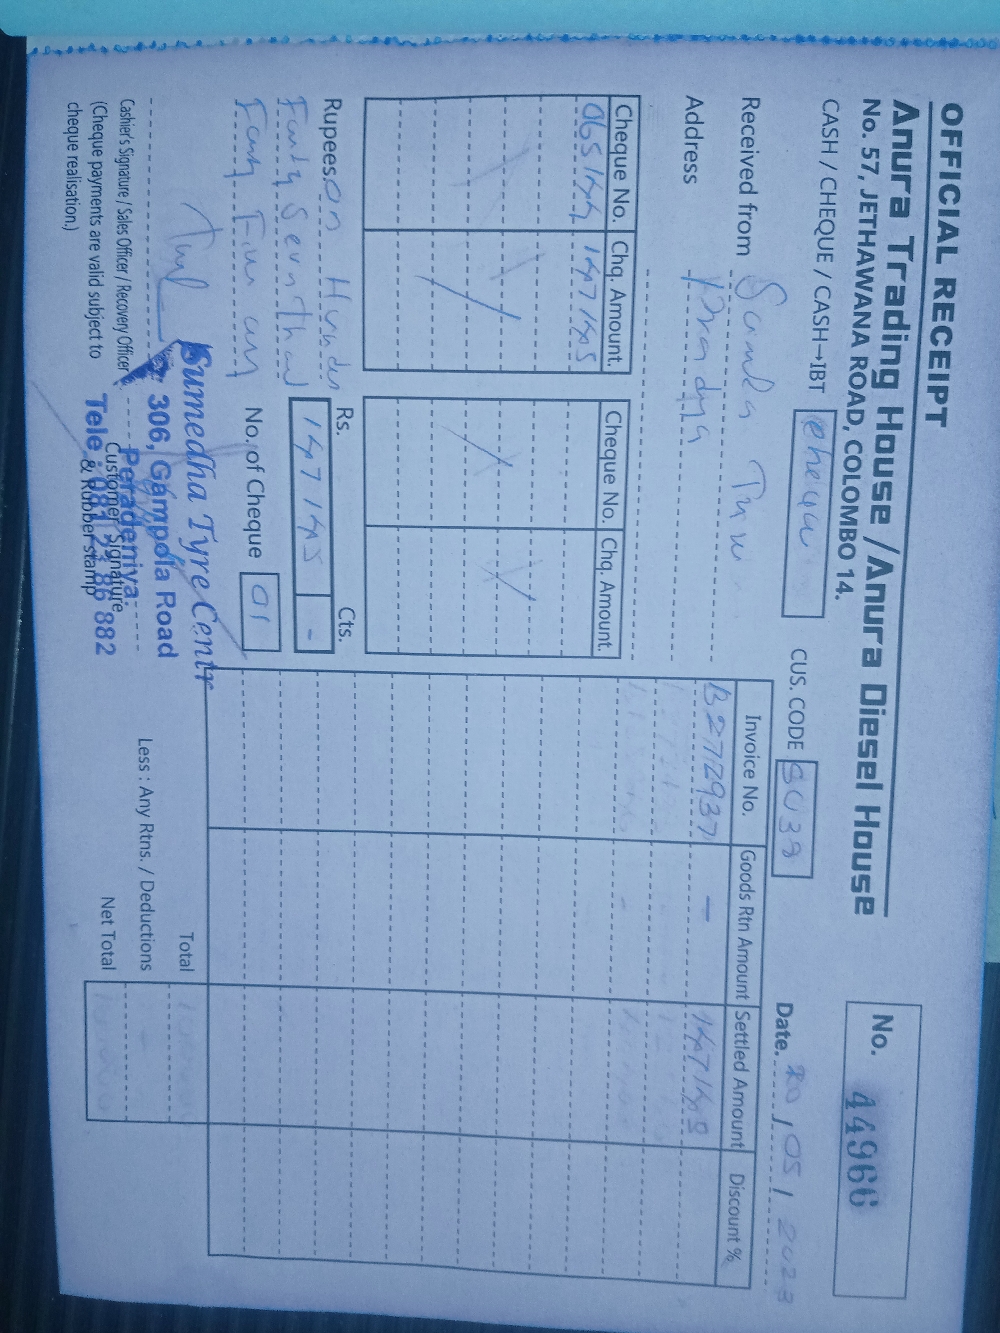 OFFICIAL RECEIPT
Anura Trading House / Anura Diesel House
No. 57, JETHAWANA ROAD, COLOMBO 14.
No. 44966
CASH / CHEQUE / CASH→IBT
CUS. CODE SU38
Date. 20 / 05 / 2023
Received from
Address
Cheque No. Chq. Amount.
065144 147145
Cheque No. Chq. Amount.
Invoice No. Goods Rtn Amount Settled Amount Discount %
B2712937 — 147145
Rupees
Rs. Cts.
147145 -
No. of Cheque 01
Cashier's Signature / Sales Officer / Recovery Officer
(Cheque payments are valid subject to
cheque realisation.)
Customer Signature
& Rubber stamp
Sumedha Tyre Centr
306, Gampola Road
Peradeniya.
Tele : 081 23 86 882
Total
Less : Any Rtns. / Deductions
Net Total